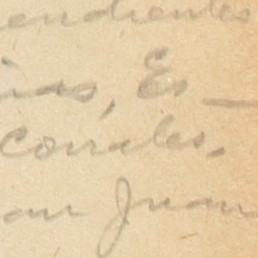 endientes
inas, Es_
Corrales.
an Juan